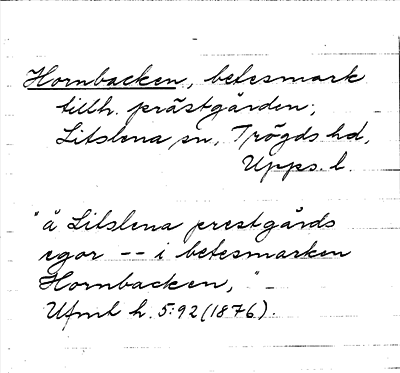 Hornbacken, betesmark
tillh. prästgården;
Litslena sn, Trögds hd,
Upps. l.
"å Litslena prestgårds
egor -- i betesmarken
Hornbacken, "-
Ufmt h. 5:92 (1876).